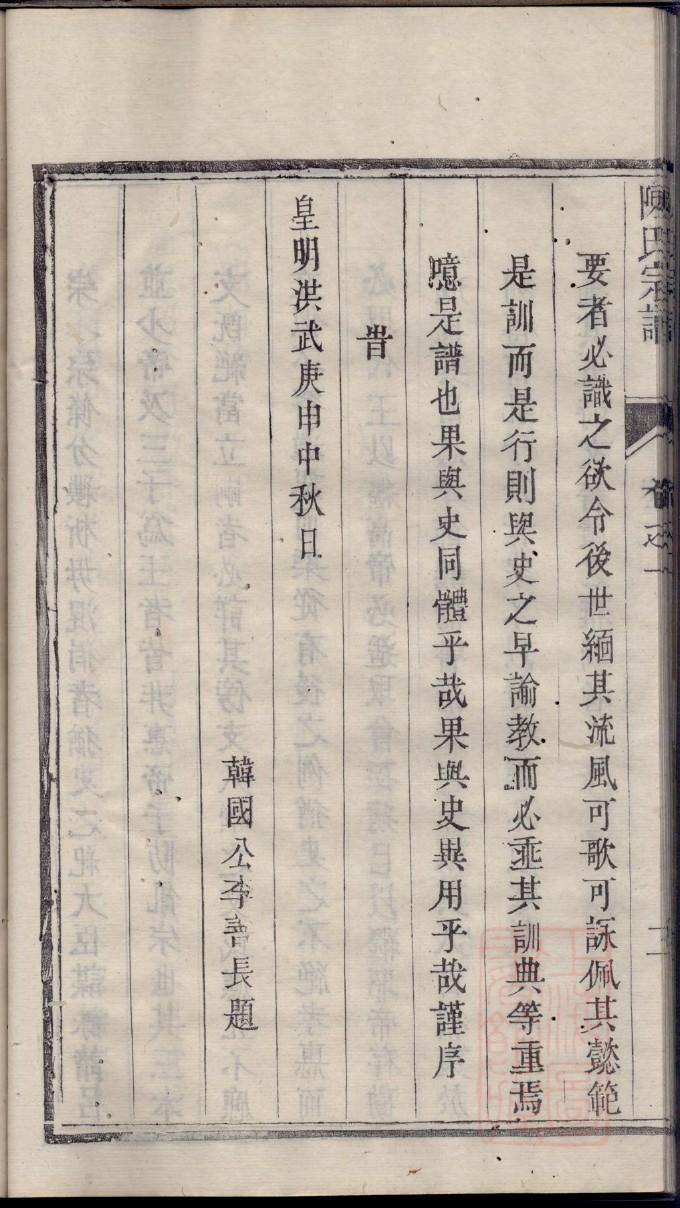 陳氏宗譜
卷之一
二
要者必識之欲令後世緬其流風可歌可詠佩其懿範
是訓而是行則與史之早諭教而必垂其訓典等重焉
噫是譜也果與史同體乎哉果與史異用乎哉謹序
旹
皇明洪武庚申中秋日
韓國公李善長題